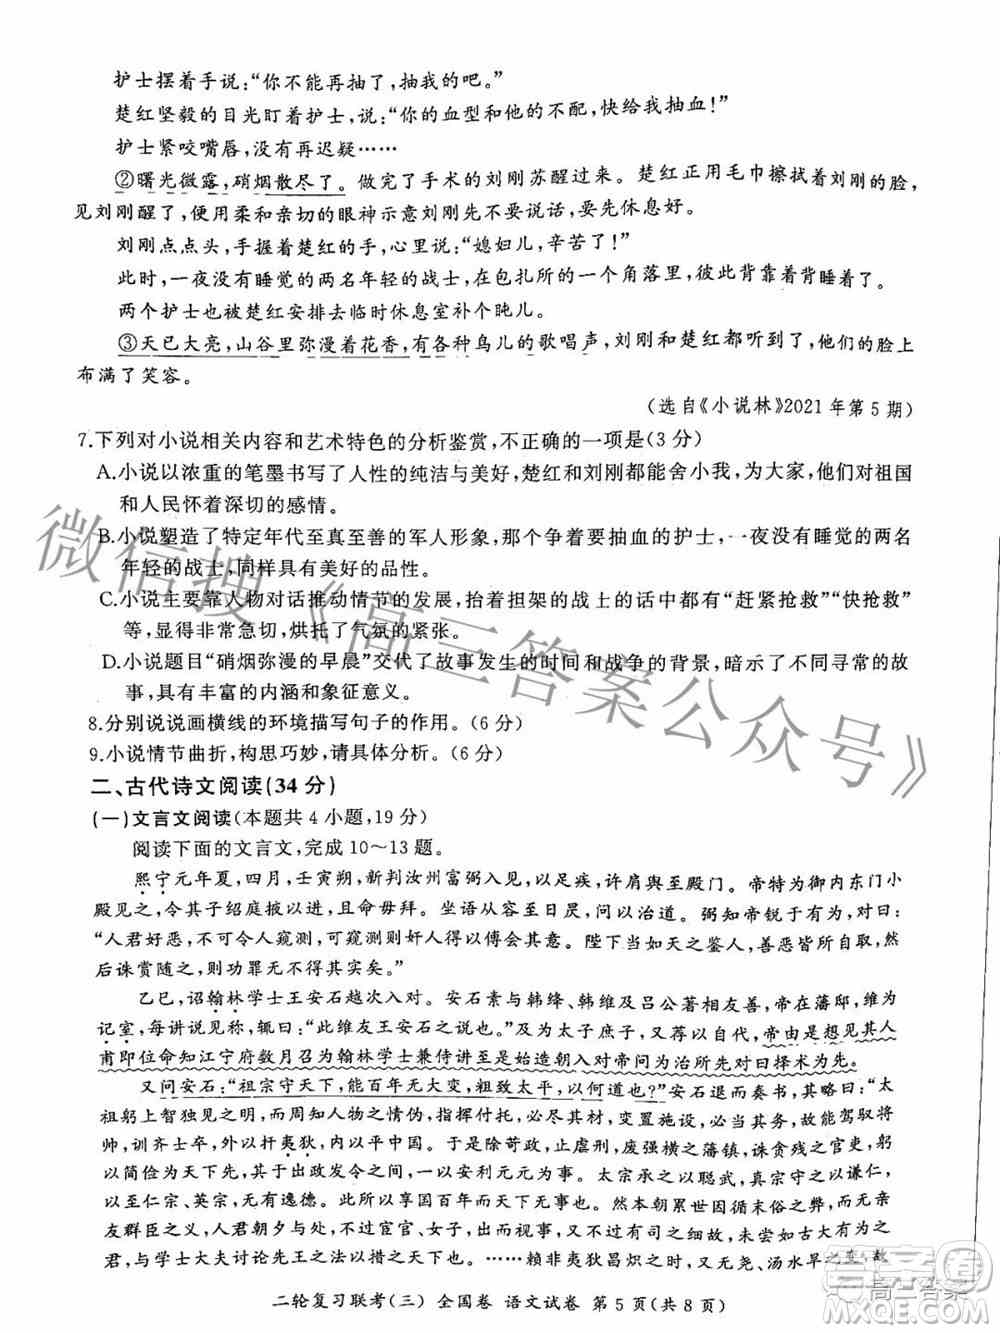 护士摆着手说:“你不能再抽了,抽我的吧。”
楚红坚毅的目光盯着护士,说:“你的血型和他的不配,快给我抽血!”
护士紧咬嘴唇,没有再迟疑……
②曙光微露,硝烟散尽了。做完了手术的刘刚苏醒过来。楚红正用毛巾擦拭着刘刚的脸,
见刘刚醒了,便用柔和亲切的眼神示意刘刚先不要说话,要先休息好。
刘刚点点头,手握着楚红的手,心里说:“媳妇儿,辛苦了!”
此时,一夜没有睡觉的两名年轻的战士,在包扎所的一个角落里,彼此背靠着背睡着了。
两个护士也被楚红安排去临时休息室补个盹儿。
③天已大亮,山谷里弥漫着花香,有各种鸟儿的歌唱声,刘刚和楚红都听到了,他们的脸上
布满了笑容。
(选自《小说林》2021年第5期)
7.下列对小说相关内容和艺术特色的分析鉴赏,不正确的一项是(3分)
A.小说以浓重的笔墨书写了人性的纯洁与美好,楚红和刘刚都能舍小我,为大家,他们对祖国
和人民怀着深切的感情。
B.小说塑造了特定年代至真至善的军人形象,那两个争着要抽血的护士,一夜没有睡觉的两名
年轻的战士,同样具有美好的品性。
C.小说主要靠人物对话推动情节的发展,抬担架的战士的话中都有“赶紧抢救”“快抢救”
等,显得非常急切,烘托了气氛的紧张。
D.小说题目“硝烟弥漫的早晨”交代了故事发生的时间和战争的背景,暗示了不同寻常的故
事,具有丰富的内涵和象征意义。
8.分别说说画横线的环境描写句子的作用。(6分)
9.小说情节曲折,构思巧妙,请具体分析。(6分)
二、古代诗文阅读(34分)
(一)文言文阅读(本题共4小题,19分)
阅读下面的文言文,完成10~13题。
熙宁元年夏,四月,壬寅朔,新判汝州富弼入见,以足疾,许肩舆至殿门。帝特为御内东门小
殿见之,令其子绍庭掖以进,且命毋拜。坐语从容至日昃,问以治道。弼知帝锐于有为,对曰:
“人君好恶,不可令人窥测,可窥测则奸人得以傅会。陛下当如天之鉴人,善恶皆所自取,
后诛赏随之,则功罪无不得其实矣。”
乙巳,诏翰林学士王安石越次入对。安石素与韩绛、韩维及吕公著相友善,帝在藩邸,维为
记室,每讲说见称,辄曰:“此维友王安石之说也。”及为太子庶子,又荐以自代,帝由是想见其人
甫即位命知江宁府数月召为翰林学士兼侍讲至是始造朝入对帝问为治所先对曰择术为先。
又问安石:“祖宗守天下,能百年无大变,粗致太平,以何道也?”安石退而奏书,其略曰:“太
祖躬上智独见之明,而周知人物之情伪,指挥付托,必尽其材,变置施设,必当其务,故能驾驭将
帅,训齐士卒,外以扞夷狄,内以平中国。于是除苛政,止虐刑,废强横之藩镇,诛贪残之官吏,躬
以简俭为天下先,其于出政发令之间,一以安利元元为事。太宗承之以聪武,真宗守之以谦仁,
以至仁宗、英宗,无有逸德。此所以享国百年而天下无事也。然本朝累世因循末俗之弊,而无亲
友群臣之义,人君朝夕与处,不过宦官、女子,出而视事,又不过有司之细故,未尝如古大有为之
君,与学士大夫讨论先王之法以措之天下也。……赖非夷狄昌炽之时,又无尧、汤水旱之变,故
二轮复习联考(三) 全国卷 语文试卷 第5页(共8页)
微信搜《高三答案公众号》
答案圈
高三答案